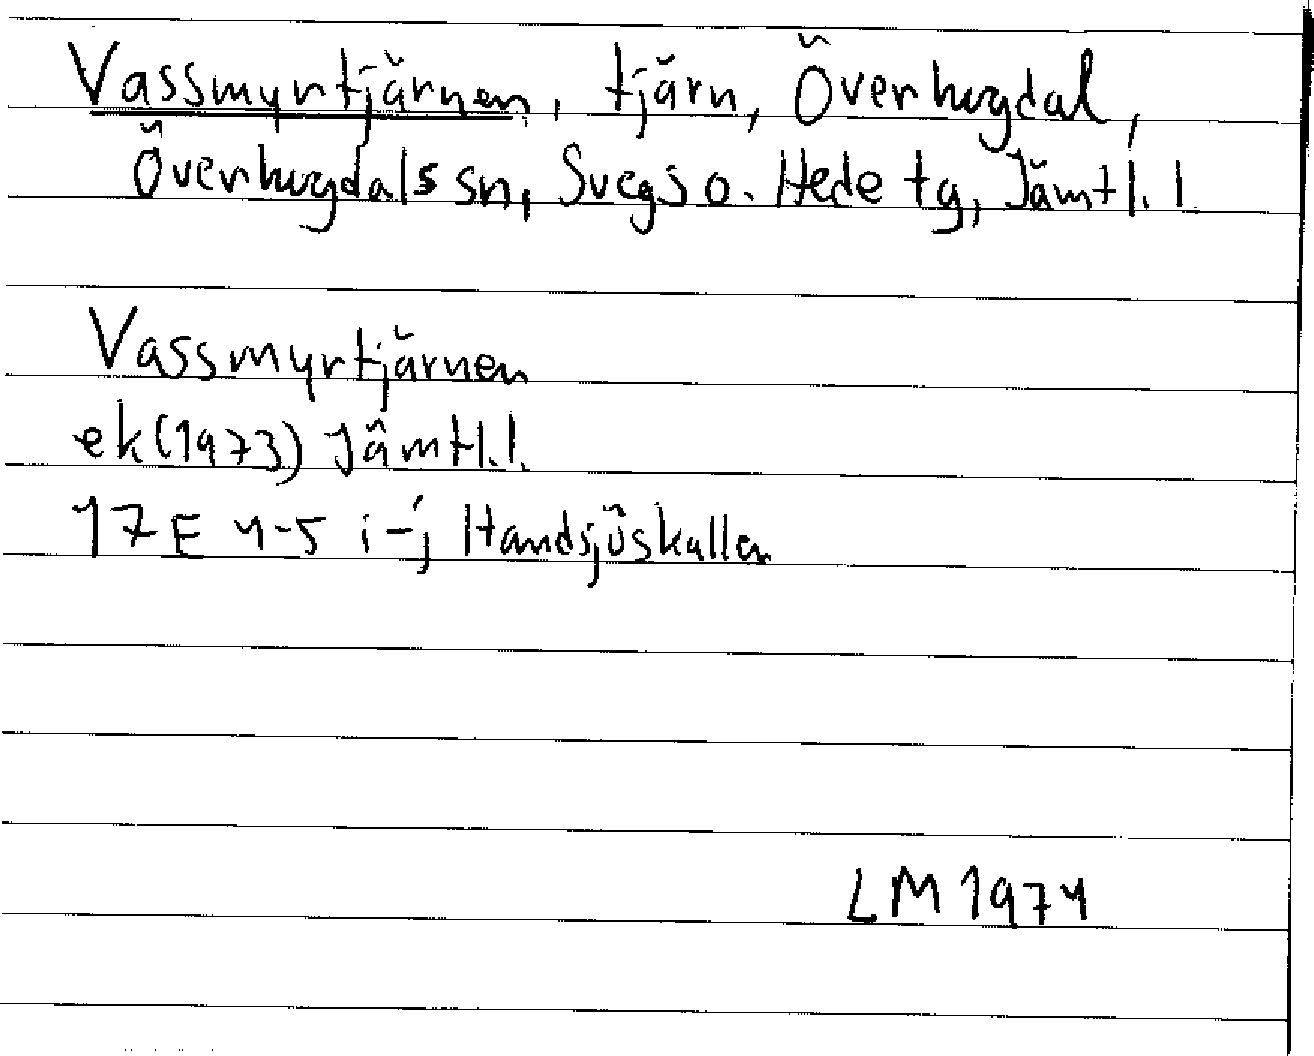 Vassmyrtjärnen, tjärn, Överhogdal,
Överhogdals sn, Svegs o. Hede tg, Jämtl. l
Vassmyrtjärnen
ek (1973) Jämtl. l.
17E 4-5 i-j Handsjöskallen
LM 1974